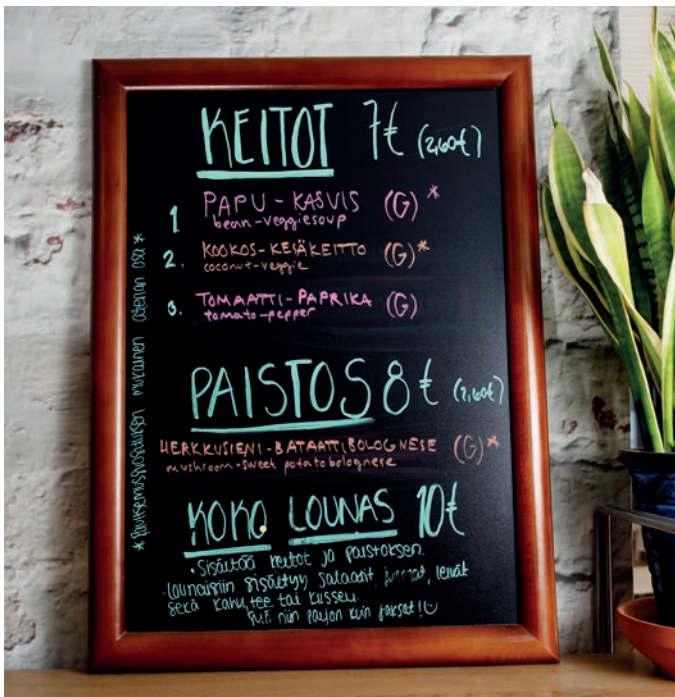 KEITOT 7€ (2,60€)
1 PAPU - KASVIS (G)*
bean-veggiesoup
2. KOOKOS-KESÄKEITTO (G)*
coconut-veggie
3. TOMAATTI-PAPRIKA (G)
tomato-pepper
PAISTOS 8€ (2,60€)
HERKKUSIENI-BATAATTIBOLOGNESE (G)*
mushroom-sweet potatobolognese
KOKO LOUNAS 10€
• Sisältää keitot ja paistoksen.
• Lounaisiin sisältyy salaatit, juomat, leivät
sekä kahvi, tee tai kissel.
Syö niin paljon kuin jaksat!
* mukainen aterian osa *